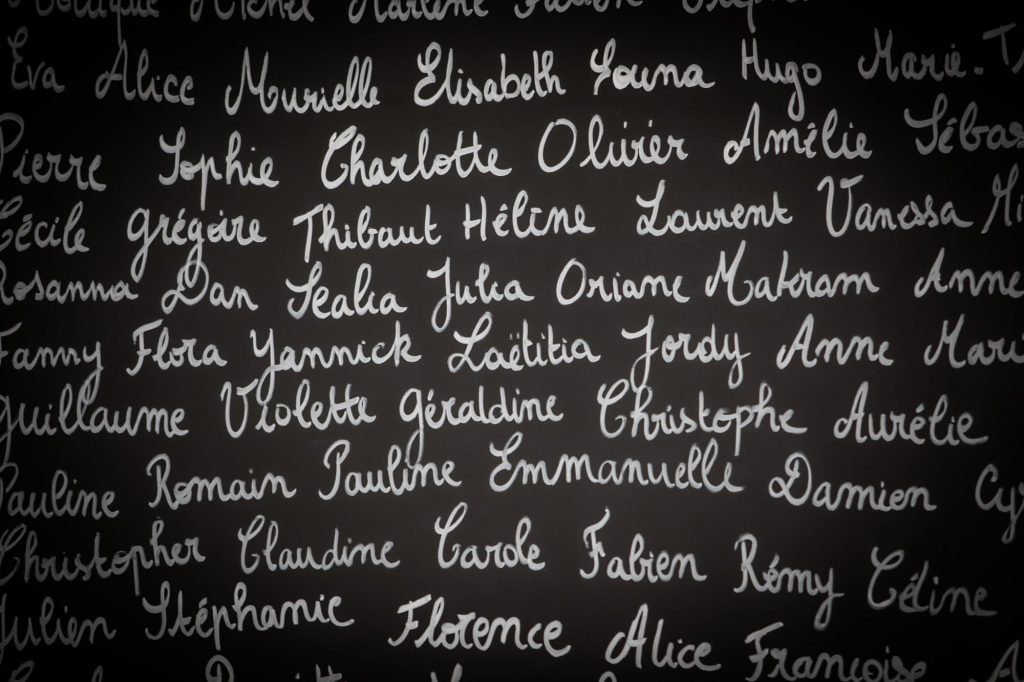 Michel Marlène
Eva Alice Murielle Elisabeth Louna Hugo Marie-
Pierre Sophie Charlotte Olivier Amélie Sébas
Cécile Grégoire Thibaut Hélène Laurent Vanessa Mi
Rosanna Dan Julia Oriane Makram Anne
Fanny Flora Yannick Laëtitia Jordy Anne Mari
Guillaume Violette Géraldine Christophe Aurélie
Pauline Romain Pauline Emmanuelle Damien Cy
Christopher Claudine Carole Fabien Rémy Céline
Julien Stéphanie Florence Alice Françoise A